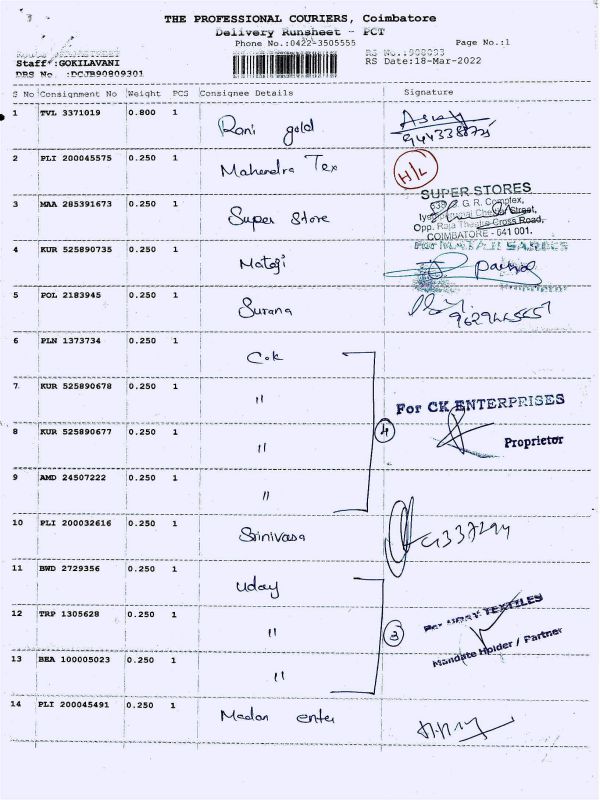 THE PROFESSIONAL COURIERS, Coimbatore
Delivery Runsheet - PCT
Phone No.:0422-3505555
Page No.:1
Staff :GOKILAVANI
RS No.:908093
RS Date:18-Mar-2022
DRS No. :DCJB90809301
S No Consignment No Weight PCS Consignee Details Signature
1 TVL 3371019 0.800 1 Rani gold
2 PLI 200045575 0.250 1 Mahendra Tex H/L
3 MAA 285391673 0.250 1 Super Store
SUPER STORES
G. R. Complex,
Street,
Opp. Raja Theatre Cross Road,
COIMBATORE - 641 001.
4 KUR 525890735 0.250 1 Mataji
For MATAJI SAREES
5 POL 2183945 0.250 1 Surana
6 PLN 1373734 0.250 1 C.k
7 KUR 525890678 0.250 1 "
For CK ENTERPRISES
4
Proprietor
8 KUR 525890677 0.250 1 "
9 AMD 24507222 0.250 1 "
10 PLI 200032616 0.250 1 Srinivasa
11 BWD 2729356 0.250 1 Uday
12 TRP 1305628 0.250 1 "
3
For UDAY TEXTILES
Mandate Holder / Partner
13 BEA 100005023 0.250 1 "
14 PLI 200045491 0.250 1 Madan enter